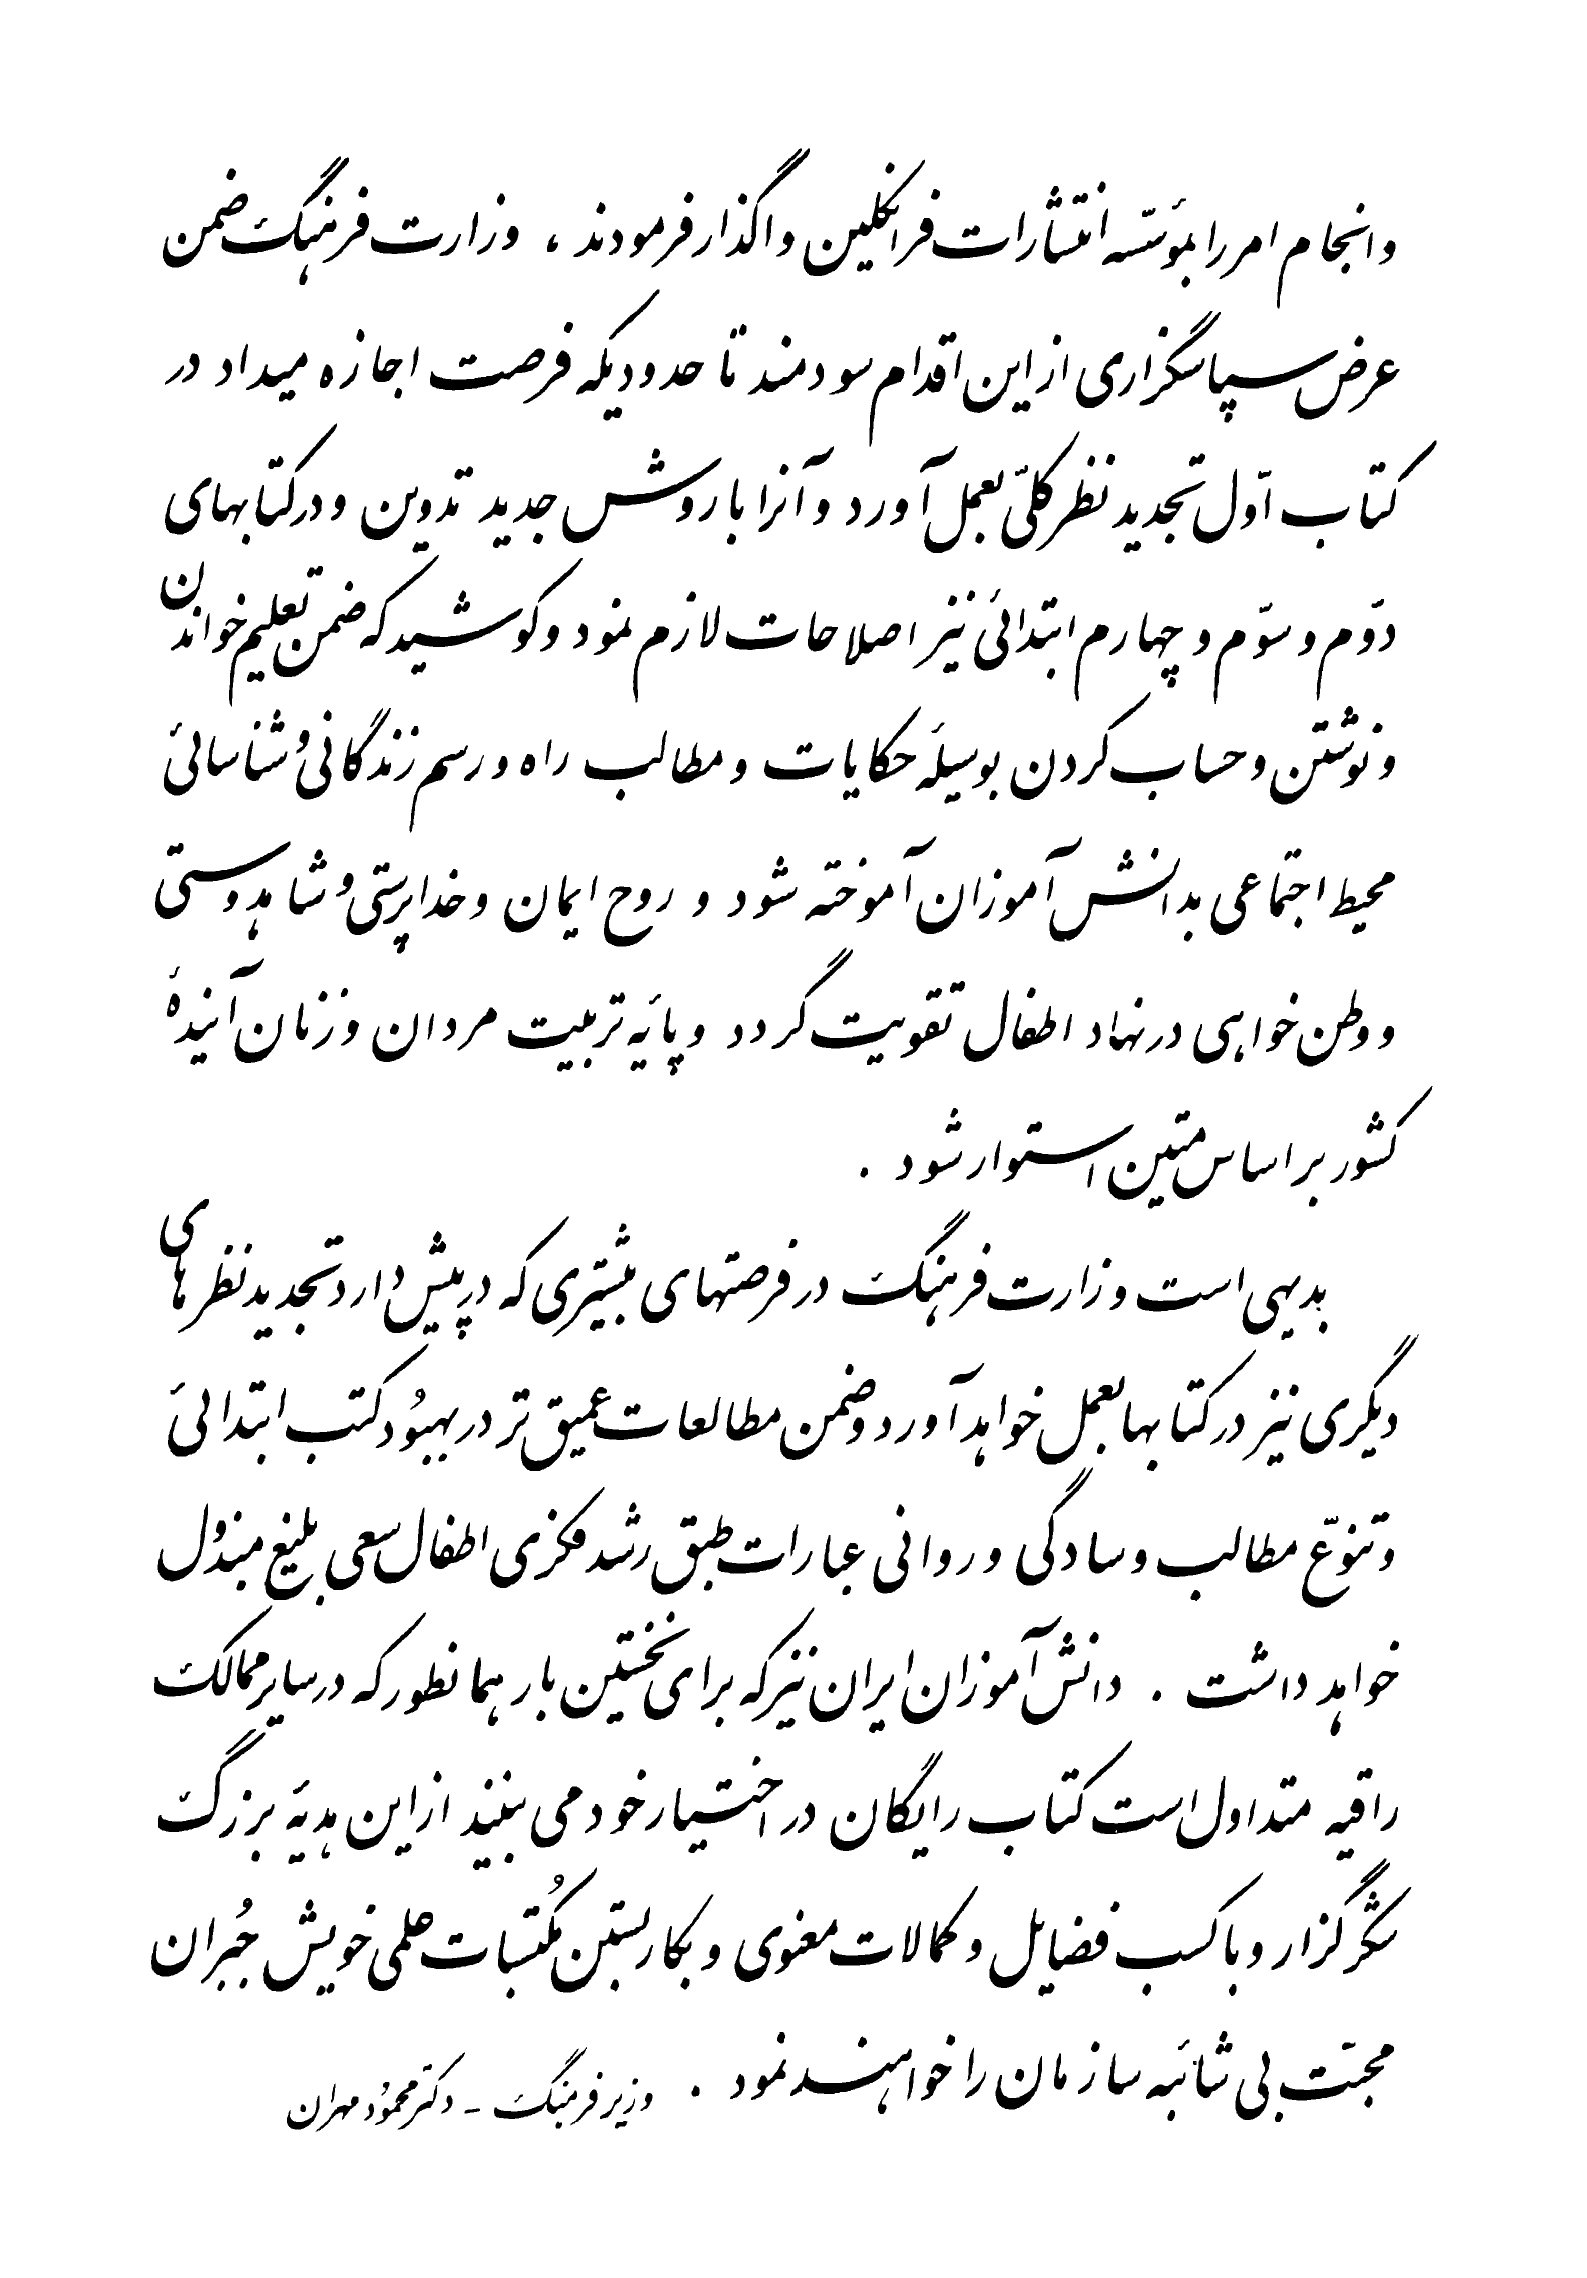 وانجام امر را بمؤسّسه انتشارات فرانکلین واگذار فرمودند ، وزارت فرهنگ ضمن
عرض سپاسگزاری از این اقدام سودمند تا حدودیکه فرصت اجازه میداد در
کتاب اوّل تجدید نظر کلّی بعمل آورد و آنرا با روش جدید تدوین و در کتابهای
دوّم و سوّم و چهارم ابتدائی نیز اصلاحات لازم نمود و کوشید که ضمن تعلیم خواندن
و نوشتن و حساب کردن بوسیلهٔ حکایات و مطالب راه و رسم زندگانی و شناسائی
محیط اجتماعی بدانش آموزان آموخته شود و روح ایمان و خداپرستی و شاهدوستی
و وطن خواهی در نهاد اطفال تقویت گردد و پایهٔ تربیت مردان و زنان آیندهٔ
کشور بر اساس متین استوار شود .
بدیهی است وزارت فرهنگ در فرصتهای بیشتری که در پیش دارد تجدید نظرهای
دیگری نیز در کتابها بعمل خواهد آورد و ضمن مطالعات عمیق تر در بهبُود کتب ابتدائی
و تنوّع مطالب و سادگی و روانی عبارات طبق رشد فکری اطفال سعی بلیغ مبذول
خواهد داشت . دانش آموزان ایران نیز که برای نخستین بار همانطور که در سایر ممالک
راقیه متداول است کتاب رایگان در اختیار خود می بینند از این هدیهٔ بزرگ
شکرگزار و با کسب فضایل و کمالات معنوی و بکار بستن مُکتسبات علمی خویش جُبران
محبّت بی شائبه سازمان را خواهند نمود . وزیر فرهنگ - دکتر محمود مهران